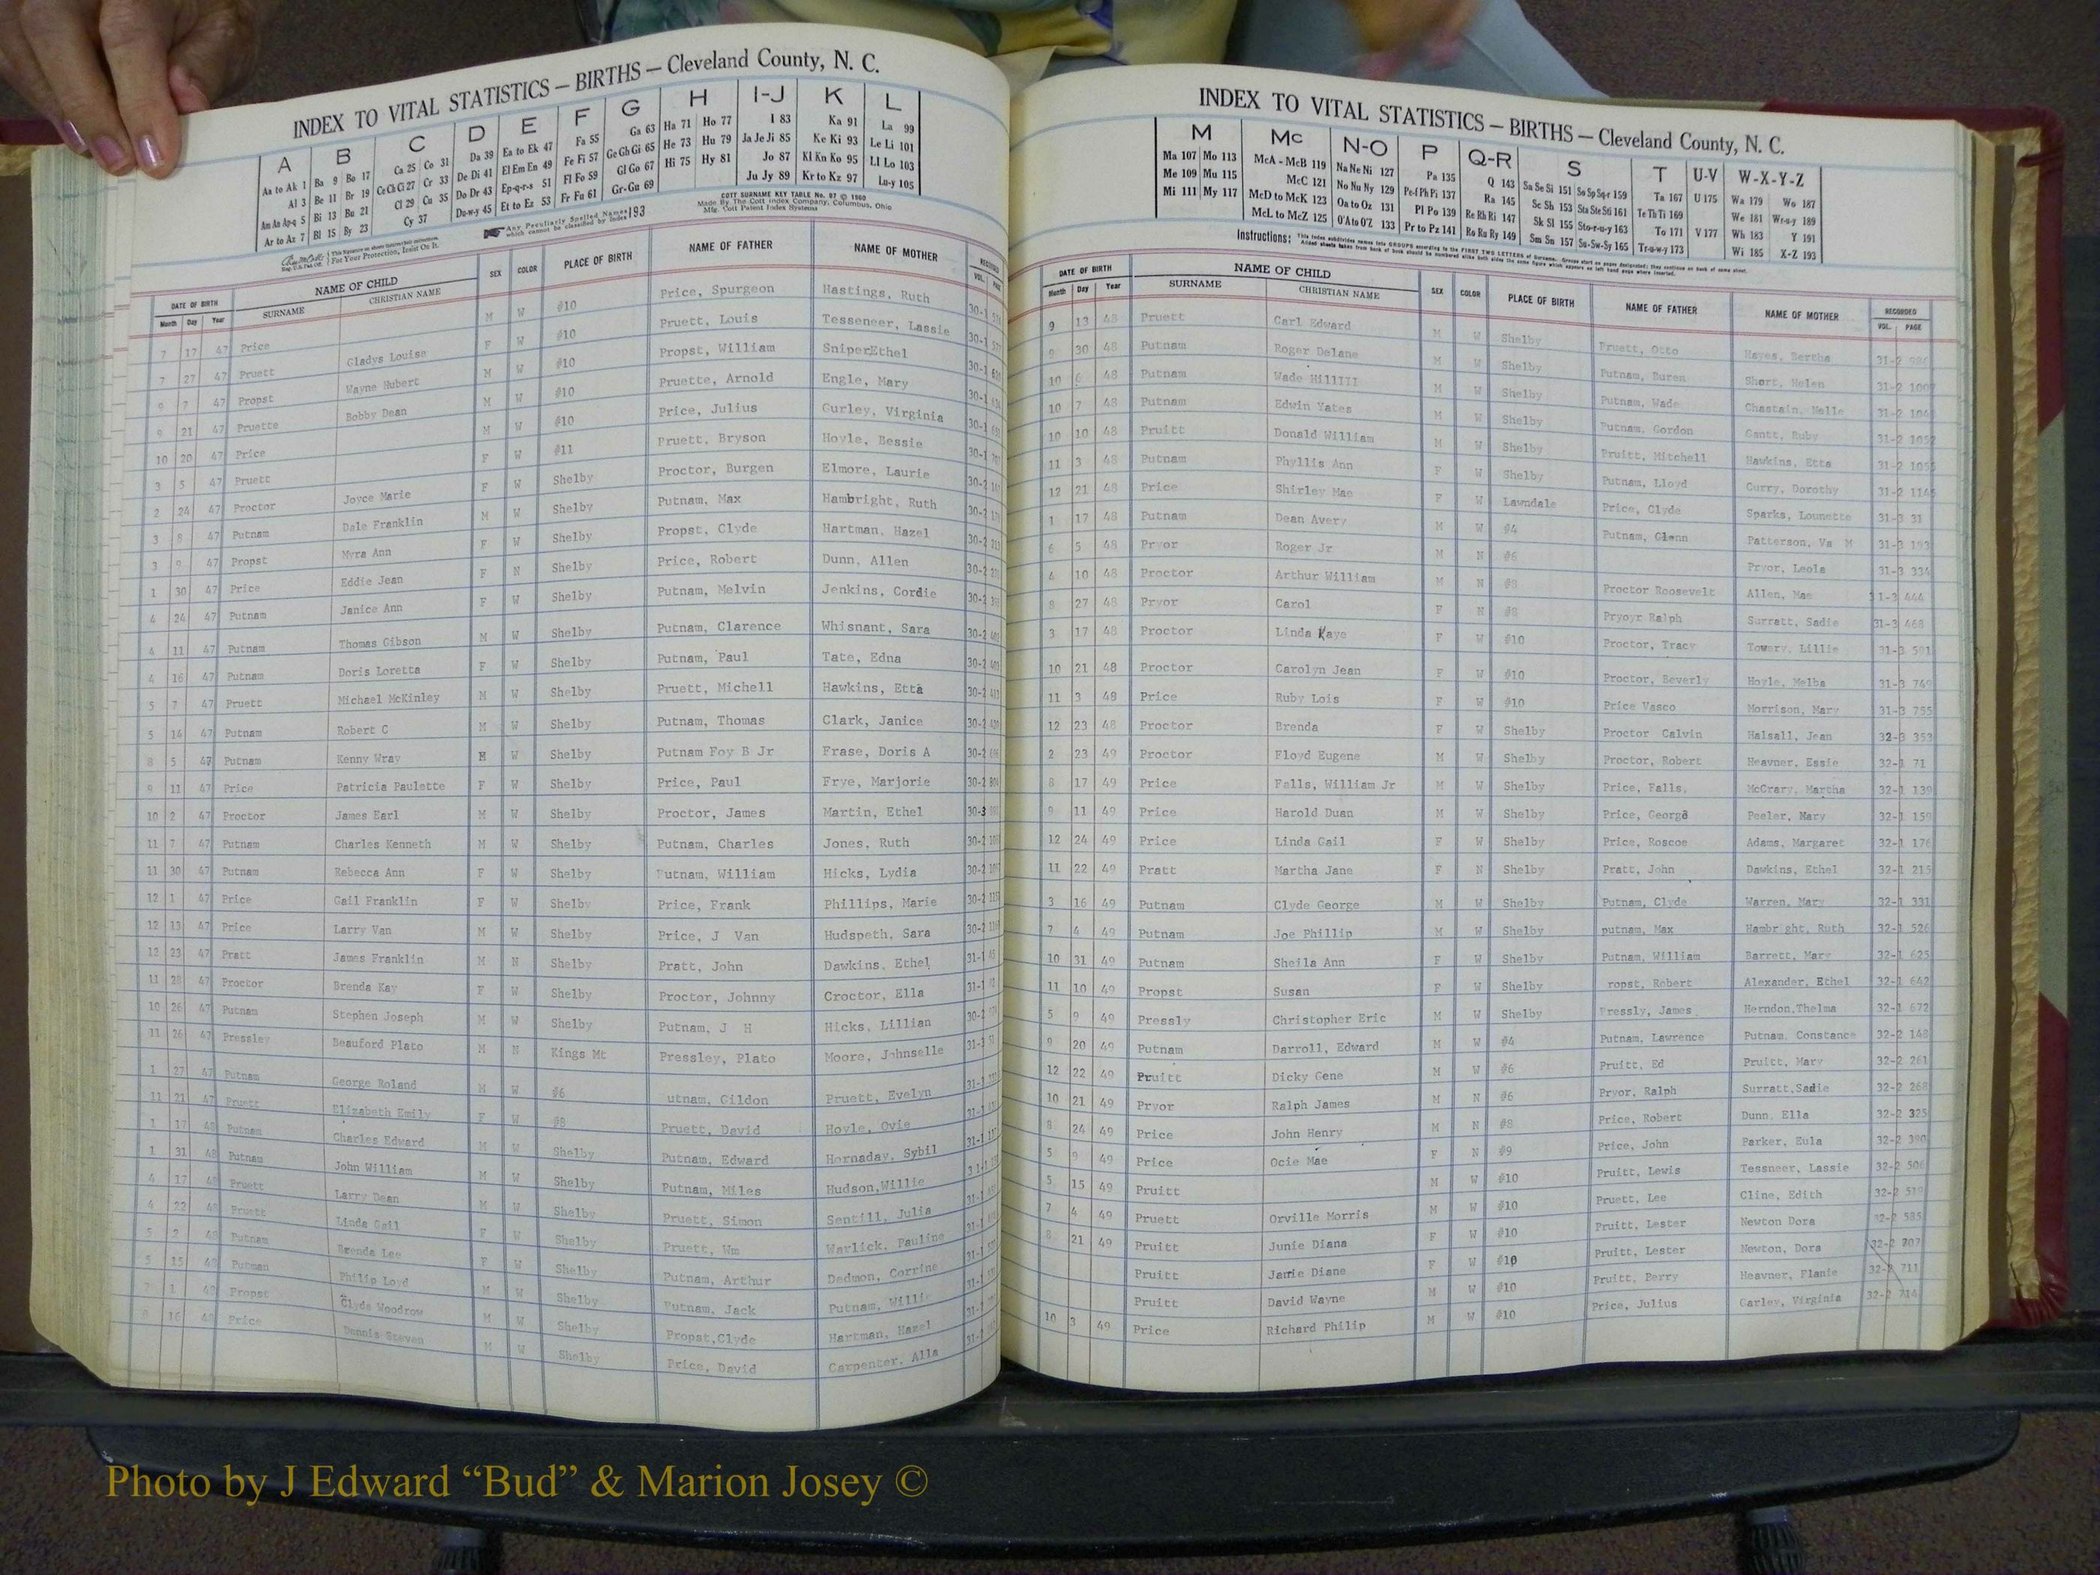 INDEX TO VITAL STATISTICS – BIRTHS – Cleveland County, N. C.
A B C D E F G H I-J K L
Aa to Ak 1 Ba 9 Bo 17 Ca 25 Co 31 Da 39 Ea to Ek 47 Fa 55 Ga 63 Ha 71 Ho 77 I 83 Ka 91 La 99
Al 3 Be 11 Br 19 Ce Ch Ci 27 Cr 33 De Di 41 El Em En 49 Fe Fi 57 Ge Gh Gi 65 He 73 Hu 79 Ja Je Ji 85 Ke Ki 93 Le Li 101
Am An Ap-q 5 Bi 13 Bu 21 Cl 29 Cu 35 Do Dr 43 Ep-q-r-s 51 Fl Fo 59 Gl Go 67 Hi 75 Hy 81 Jo 87 Kl Kn Ko 95 Ll Lo 103
Ar to Az 7 Bl 15 By 23 Cy 37 Du-w-y 45 Et to Ez 53 Fr Fu 61 Gr-Gu 69 Ju Jy 89 Kr to Kz 97 Lu-y 105
For Your Protection, Insist On It.
Any Peculiarly Spelled Names which cannot be classified by Index 193
COTT SURNAME KEY TABLE No. 97 © 1960
Made By The Cott Index Company, Columbus, Ohio
Mfg. Cott Patent Index Systems
DATE OF BIRTH NAME OF CHILD SEX COLOR PLACE OF BIRTH NAME OF FATHER NAME OF MOTHER RECORDED
Month Day Year SURNAME CHRISTIAN NAME VOL. PAGE
7 17 47 Price M W #10 Price, Spurgeon Hastings, Ruth 30-1
7 27 47 Pruett Gladys Louise F W #10 Pruett, Louis Tesseneer, Lassie 30-1
9 7 47 Propst Wayne Hubert M W #10 Propst, William Sniper Ethel 30-1
9 21 47 Pruette Bobby Dean M W #10 Pruette, Arnold Engle, Mary 30-1
10 20 47 Price M W #10 Price, Julius Gurley, Virginia 30-1
3 5 47 Pruett F W #11 Pruett, Bryson Hoyle, Bessie 30-1
2 24 47 Proctor Joyce Marie F W Shelby Proctor, Burgen Elmore, Laurie 30-2
3 8 47 Putnam Dale Franklin M W Shelby Putnam, Max Hambright, Ruth 30-2
3 9 47 Propst Myra Ann F W Shelby Propst, Clyde Hartman, Hazel 30-2
1 30 47 Price Eddie Jean F N Shelby Price, Robert Dunn, Allen 30-2
4 24 47 Putnam Janice Ann F W Shelby Putnam, Melvin Jenkins, Cordie 30-2
4 11 47 Putnam Thomas Gibson M W Shelby Putnam, Clarence Whisnant, Sara 30-2
4 16 47 Putnam Doris Loretta F W Shelby Putnam, Paul Tate, Edna 30-2
5 7 47 Pruett Michael McKinley M W Shelby Pruett, Michell Hawkins, Etta 30-2
5 14 47 Putnam Robert C M W Shelby Putnam, Thomas Clark, Janice 30-2
8 5 47 Putnam Kenny Wray M W Shelby Putnam Foy B Jr Frase, Doris A 30-2
9 11 47 Price Patricia Paulette F W Shelby Price, Paul Frye, Marjorie 30-2
10 2 47 Proctor James Earl M W Shelby Proctor, James Martin, Ethel 30-3
11 7 47 Putnam Charles Kenneth M W Shelby Putnam, Charles Jones, Ruth 30-2
11 30 47 Putnam Rebecca Ann F W Shelby Putnam, William Hicks, Lydia 30-2
12 1 47 Price Gail Franklin F W Shelby Price, Frank Phillips, Marie 30-2
12 13 47 Price Larry Van M W Shelby Price, J Van Hudspeth, Sara 30-2
12 23 47 Pratt James Franklin M N Shelby Pratt, John Dawkins, Ethel 31-1
11 28 47 Proctor Brenda Kay F W Shelby Proctor, Johnny Croctor, Ella 31-1
10 26 47 Putnam Stephen Joseph M W Shelby Putnam, J H Hicks, Lillian 30-2
11 26 47 Pressley Beauford Plato M N Kings Mt Pressley, Plato Moore, Johnselle
1 27 47 Putnam George Roland M W #6 utnam, Gildon Pruett, Evelyn
11 21 47 Pruett Elizabeth Emily F W #8 Pruett, David Hoyle, Ovie
1 17 48 Putnam Charles Edward M W Shelby Putnam, Edward Hornaday, Sybil
1 31 48 Putnam John William M W Shelby Putnam, Miles Hudson,Willie
4 17 48 Pruett Larry Dean M W Shelby Pruett, Simon Sentill, Julia
4 22 48 Pruett Linda Gail F W Shelby Pruett, Wm Warlick, Pauline
5 2 48 Putnam Brenda Lee F W Shelby Putnam, Arthur Dedmon, Corrine
5 15 48 Putman Philip Loyd M W Shelby Putnam, Jack Putnam, Willie
7 1 48 Propst Clyde Woodrow M W Shelby Propst,Clyde Hartman, Hazel
8 16 48 Price Dennis Steven M W Shelby Price, David Carpenter, Alla
INDEX TO VITAL STATISTICS – BIRTHS – Cleveland County, N. C.
M Mc N-O P Q-R S T U-V W-X-Y-Z
Ma 107 Mo 113 McA - McB 119 Na Ne Ni 127 Pa 135 Q 143 Sa Se Si 151 So Sp Sq-r 159 Ta 167 U 175 Wa 179 Wo 187
Me 109 Mu 115 McC 121 No Nu Ny 129 Pe-f Ph Pi 137 Ra 145 Sc Sh 153 Sta Ste Sti 161 Te Th Ti 169 We 181 Wr-u-y 189
Mi 111 My 117 McD to McK 123 Oa to Oz 131 Pl Po 139 Re Rh Ri 147 Sk Sl 155 Sto-r-u-y 163 To 171 V 177 Wh 183 Y 191
McL to McZ 125 O'A to O'Z 133 Pr to Pz 141 Ro Ru Ry 149 Sm Sn 157 Su-Sw-Sy 165 Tr-u-w-y 173 Wi 185 X-Z 193
Instructions: This index subdivides names into GROUPS according to the FIRST TWO LETTERS of Surname.
DATE OF BIRTH NAME OF CHILD SEX COLOR PLACE OF BIRTH NAME OF FATHER NAME OF MOTHER RECORDED
Month Day Year SURNAME CHRISTIAN NAME VOL. PAGE
9 13 48 Pruett Carl Edward M W Shelby Pruett, Otto Hayes, Bertha 31-2
9 30 48 Putnam Roger Delane M W Shelby Putnam, Buren Short, Helen 31-2
10 6 48 Putnam Wade HillIII M W Shelby Putnam, Wade Chastain, Nelle 31-2
10 7 48 Putnam Edwin Yates M W Shelby Putnam, Gordon Gantt, Ruby 31-2
10 10 48 Pruitt Donald William M W Shelby Pruitt, Mitchell Hawkins, Etta 31-2
11 3 48 Putnam Phyllis Ann F W Shelby Putnam, Lloyd Curry, Dorothy 31-2
12 21 48 Price Shirley Mae F W Lawndale Price, Clyde Sparks, Lounette 31-3 31
1 17 48 Putnam Dean Avery M W #4 Putnam, Glenn Patterson, Va M 31-3 193
6 5 48 Pryor Roger Jr M N #6 Pryor, Leola 31-3 334
4 10 48 Proctor Arthur William M N #8 Proctor Roosevelt Allen, Mae 31-3 444
8 27 48 Pryor Carol F N #8 Pryoyr Ralph Surratt, Sadie 31-3 468
3 17 48 Proctor Linda Kaye F W #10 Proctor, Tracy Towery, Lillie 31-3 591
10 21 48 Proctor Carolyn Jean F W #10 Proctor, Beverly Hoyle, Melba 31-3 749
11 3 48 Price Ruby Lois F W #10 Price Vasco Morrison, Mary 31-3 755
12 23 48 Proctor Brenda F W Shelby Proctor Calvin Halsall, Jean 32-3 353
2 23 49 Proctor Floyd Eugene M W Shelby Proctor, Robert Heavner, Essie 32-1 71
8 17 49 Price Falls, William Jr M W Shelby Price, Falls, McCrary, Martha 32-1 139
9 11 49 Price Harold Duan M W Shelby Price, George Peeler, Mary 32-1 159
12 24 49 Price Linda Gail F W Shelby Price, Roscoe Adams, Margaret 32-1 176
11 22 49 Pratt Martha Jane F N Shelby Pratt, John Dawkins, Ethel 32-1 215
3 16 49 Putnam Clyde George M W Shelby Putnam, Clyde Warren, Mary 32-1 331
7 4 49 Putnam Joe Phillip M W Shelby putnam, Max Hambright, Ruth 32-1 526
10 31 49 Putnam Sheila Ann F W Shelby Putnam, William Barrett, Mary 32-1 625
11 10 49 Propst Susan F W Shelby ropst, Robert Alexander, Ethel 32-1 642
5 9 49 Pressly Christopher Eric M W Shelby Pressly, James Herndon,Thelma 32-1 672
9 20 49 Putnam Darroll, Edward M W #4 Putnam, Lawrence Putnam, Constance 32-2 148
12 22 49 Pruitt Dicky Gene M W #6 Pruitt, Ed Pruitt, Mary 32-2 261
10 21 49 Pryor Ralph James M N #6 Pryor, Ralph Surratt,Sadie 32-2 268
8 24 49 Price John Henry M N #8 Price, Robert Dunn, Ella 32-2 325
5 9 49 Price Ocie Mae F N #9 Price, John Parker, Eula 32-2 390
5 15 49 Pruitt M W #10 Pruitt, Lewis Tessneer, Lassie 32-2 506
7 4 49 Pruett Orville Morris M W #10 Pruett, Lee Cline, Edith 32-2
8 21 49 Pruitt Junie Diana F W #10 Pruitt, Lester Newton Dora 32-2 585
Pruitt Jamie Diane F W #10 Pruitt, Lester Newton, Dora 32-2
Pruitt David Wayne M W #10 Pruitt, Perry Heavner, Flanie 32-2 711
10 3 49 Price Richard Philip M W #10 Price, Julius Garley, Virginia 32-2 714
Photo by J Edward “Bud” & Marion Josey ©